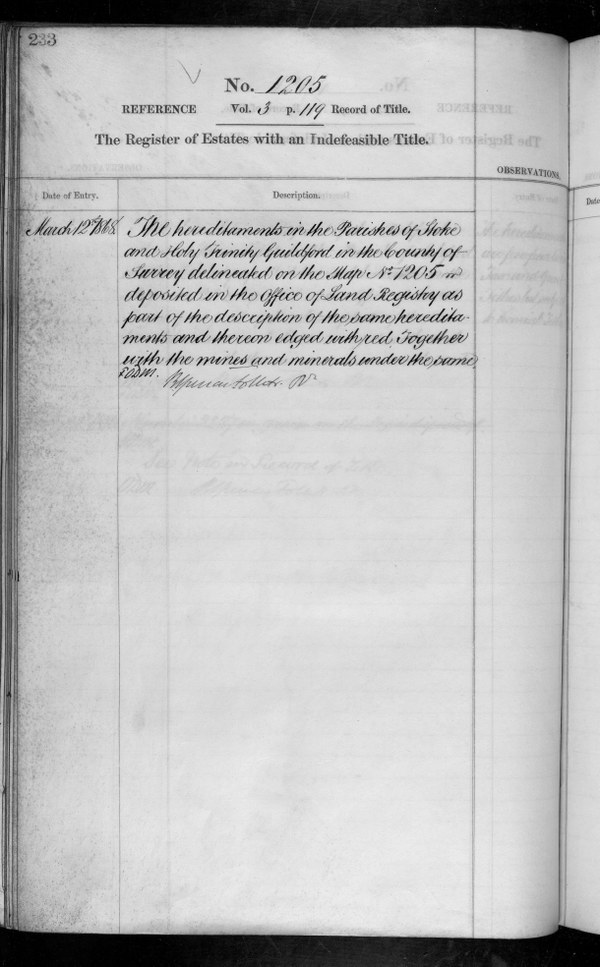 233
No. 1205
REFERENCE Vol. 3 p. 119 Record of Title.
The Register of Estates with an Indefeasible Title.
OBSERVATIONS.
Date of Entry. Description. Date
March 12th 1868. The hereditaments in the Parishes of Stoke
and Holy Trinity Guildford in the County of
Surrey delineated on the Map No. 1205
deposited in the Office of Land Registry as
part of the description of the same heredita-
ments and thereon edged with red Together
with the mines and minerals under the same